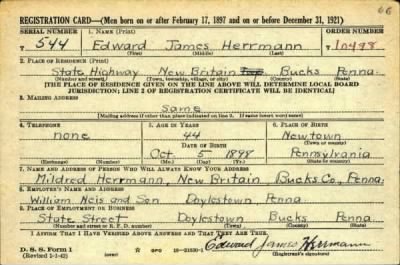 66
REGISTRATION CARD—(Men born on or after February 17, 1897 and on or before December 31, 1921)
SERIAL NUMBER 1. NAME (Print) ORDER NUMBER
544 Edward James Herrmann 10498
(First) (Middle) (Last)
2. PLACE OF RESIDENCE (Print)
State Highway New Britain Twp. Bucks Penna.
(Number and street) (Town, township, village, or city) (County) (State)
[THE PLACE OF RESIDENCE GIVEN ON THE LINE ABOVE WILL DETERMINE LOCAL BOARD
JURISDICTION; LINE 2 OF REGISTRATION CERTIFICATE WILL BE IDENTICAL]
3. MAILING ADDRESS
Same
[Mailing address if other than place indicated on line 2. If same insert word same]
4. TELEPHONE 5. AGE IN YEARS 6. PLACE OF BIRTH
none 44 Newtown
DATE OF BIRTH (Town or county)
Oct 5 1898 Pennsylvania
(Exchange) (Number) (Mo.) (Day) (Yr.) (State or country)
7. NAME AND ADDRESS OF PERSON WHO WILL ALWAYS KNOW YOUR ADDRESS
Mildred Herrmann, New Britain Bucks Co., Penna.
8. EMPLOYER'S NAME AND ADDRESS
William Neis and Son Doylestown Penna.
9. PLACE OF EMPLOYMENT OR BUSINESS
State Street Doylestown Bucks Penna.
(Number and street or R. F. D. number) (Town) (County) (State)
I AFFIRM THAT I HAVE VERIFIED ABOVE ANSWERS AND THAT THEY ARE TRUE.
D. S. S. Form 1 GPO 16—21630-1 Edward James Herrmann
(Revised 1-1-42) (Registrant's signature)